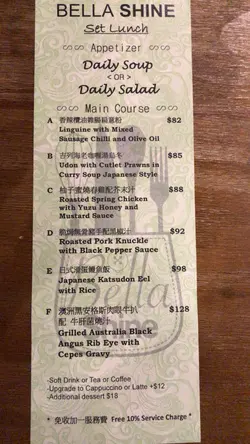 BELLA SHINE
Set Lunch
Appetizer
Daily Soup
< OR >
Daily Salad
Main Course
A 香辣欖油雞腸扁意粉 $82
Linguine with Mixed
Sausage Chilli and Olive Oil
B 吉列海老咖喱湯烏冬 $85
Udon with Cutlet Prawns in
Curry Soup Japanese Style
C 柚子蜜燒春雞配芥末汁 $88
Roasted Spring Chicken
with Yuzu Honey and
Mustard Sauce
D 脆焗豬手配黑椒汁 $92
Roasted Pork Knuckle
with Black Pepper Sauce
E 日式滑蛋鰻魚飯 $98
Japanese Katsudon Eel
with Rice
F 澳洲黑安格斯肉眼牛扒 $128
配 牛肝菌燒汁
Grilled Australia Black
Angus Rib Eye with
Cepes Gravy
-Soft Drink or Tea or Coffee
-Upgrade to Cappuccino or Latte +$12
-Additional dessert $18
* 免收加一服務費 Free 10% Service Charge *